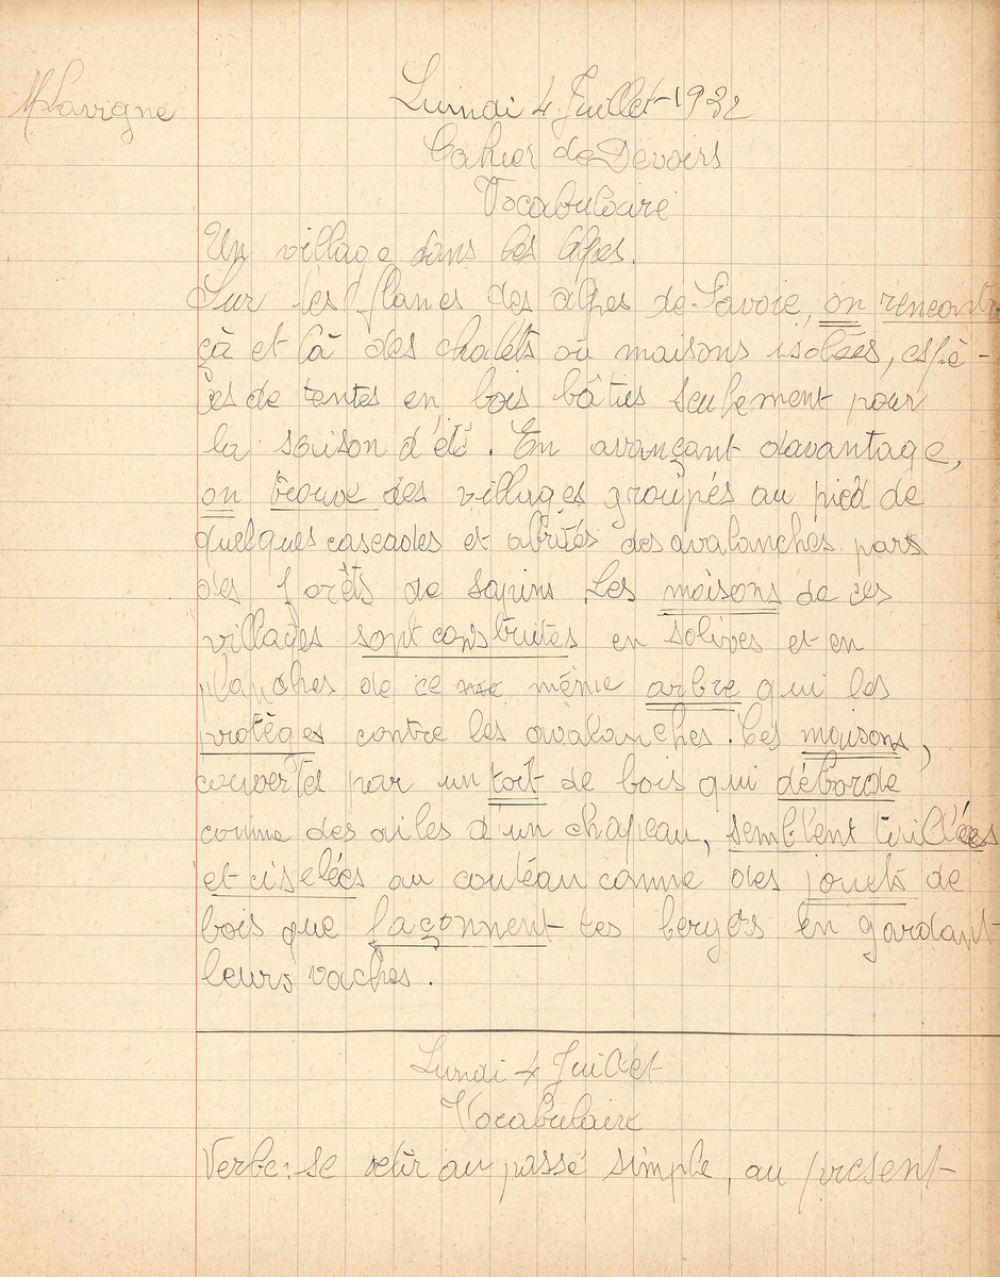 M Lavigne
Lundi 4 Juillet 1932
Cahier de Devoirs
Vocabulaire
Un village dans les Alpes.
Sur les flancs des alpes de Savoie, on rencontre
çà et là des chalets où maisons isolées, espè-
ces de tentes en bois bâties seulement pour
la saison d'été. En avançant davantage,
on trouve des villages groupés au pied de
quelques cascades et abrités des avalanches pars
des forêts de sapins Les maisons de ces
villages sont construites en solives et en
planches de ce même arbre qui les
protèges contre les avalanches. Ces maisons,
couvertes par un toit de bois qui déborde
comme des ailes d'un chapeau, semblent taillées
et ciselées au coutéau comme des jouets de
bois que façonnent les bergers en gardant
leurs vaches.
Lundi 4 Juillet
Vocabulaire
Verbe: se vetir au passé simple, au present